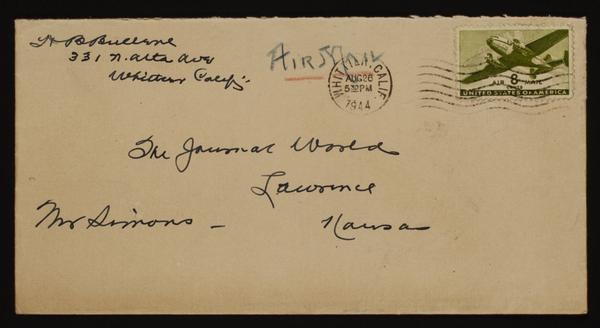 H B Bullene
331 N. Alta Ave
Whittier Calif
AIR MAIL
WHITTIER, CALIF.
AUG 26
5 PM
1944
8
CENTS
AIR MAIL
UNITED STATES OF AMERICA
The Journal World
Lawrence
Mr Simons - Kansas